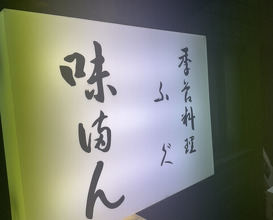 季節料理
ふぐ
味満ん